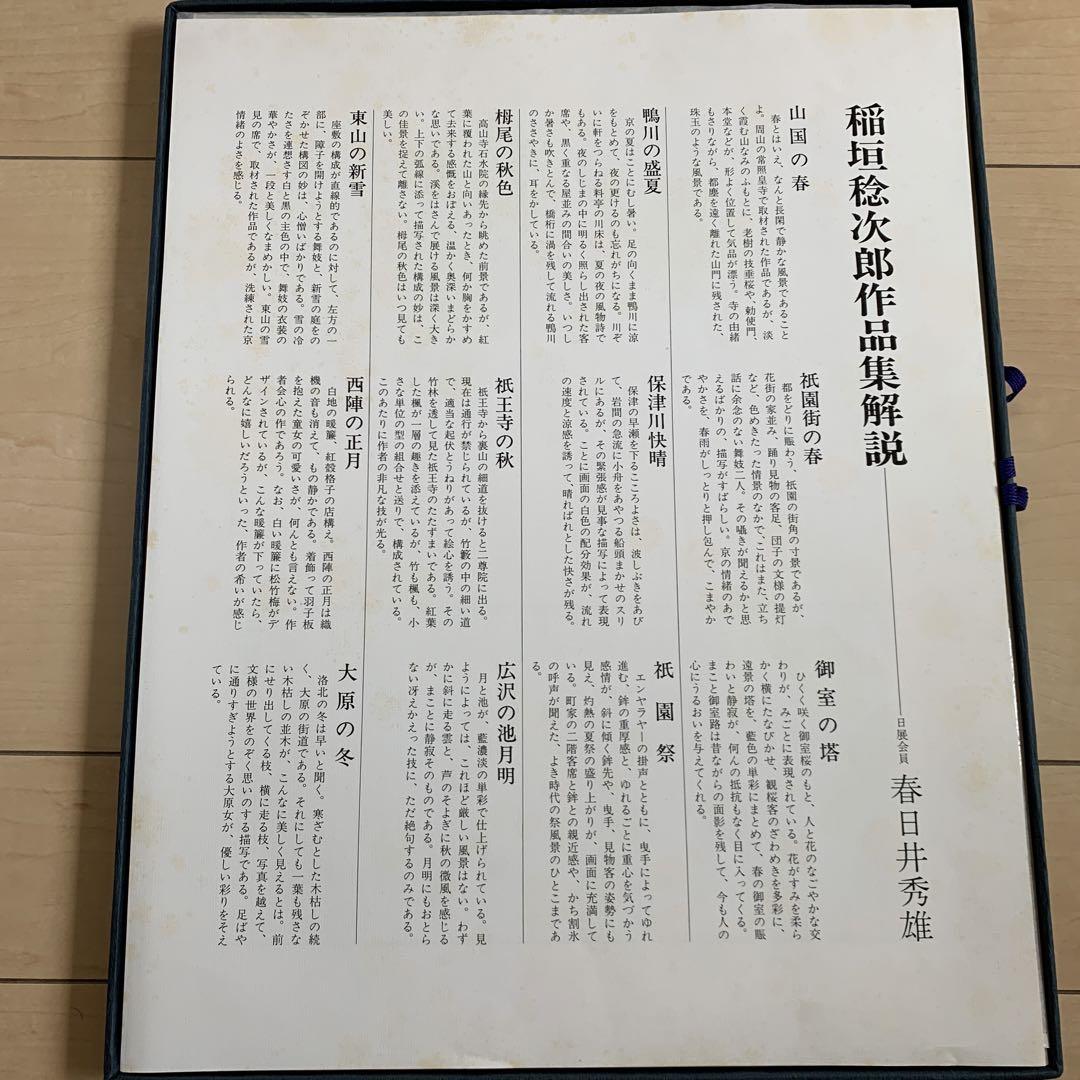 稲垣稔次郎作品集解説
日展会員 春日井秀雄
山国の春
春とはいえ、なんと長閑で静かな風景であること
よ。周山の常照皇寺で取材された作品であるが、淡
く霞む山なみのふもとに、老樹の技垂桜や、勅使門、
本堂などが、形よく位置して気品が漂う。寺の由緒
もさりながら、都塵を遠く離れた山門に残された、
珠玉のような風景である。
祇園街の春
都をどりに賑わう、祇園の街角の寸景であるが、
花街の家並み、踊り見物の客足、団子の文様の提灯
など、色めきたった情景のなかで、これはまた、立ち
話に余念のない舞妓二人。その囁きが聞えるかと思
えるばかりの、描写がすばらしい。京の情緒のあで
やかさを、春雨がしっとりと押し包んで、こまやか
である。
御室の塔
ひくく咲く御室桜のもと、人と花のなごやかな交
わりが、みごとに表現されている。花がすみを柔ら
かく横にたなびかせ、観桜客のざわめきを多彩に、
遠景の塔を、藍色の単彩にまとめて、春の御室の賑
わいと静寂が、何んの抵抗もなく目に入ってくる。
まこと御室路は昔ながらの面影を残して、今も人の
心にうるおいを与えてくれる。
鴨川の盛夏
京の夏はことにむし暑い。足の向くまま鴨川に涼
をもとめて、夜の更けるのも忘れがちになる。川ぞ
いに軒をつらねる料亭の川床は、夏の夜の風物詩で
もある。夜のしじまの中に明るく照らし出された客
席や、黒く重なる屋並みの間合いの美しさ。いつし
か暑さも吹きとんで、橋桁に渦を残して流れる鴨川
のささやきに、耳をかしている。
保津川快晴
保津の早瀬を下るこころよさは、波しぶきをあび
て、岩間の急流に小舟をあやつる船頭まかせのスリ
ルにあるが、その緊張感が見事な描写によって表現
されている。ことに画面の白色の配分効果が、流れ
の速度と涼感を誘って、晴ればれとした快さが残る。
祇園祭
エンヤラヤーの掛声とともに、曳手によってゆれ
進む、鉾の重厚感と、ゆれるごとに重心を気づかう
感情が、斜に傾く鉾先や、曳手、見物客の姿勢にも
見え、灼熱の夏祭の盛り上がりが、画面に充満して
いる。町家の二階客席と鉾との親近感や、かち割氷
の呼声が聞えた、よき時代の祭風景のひとこまであ
る。
栂尾の秋色
高山寺石水院の縁先から眺めた前景であるが、紅
葉に覆われた山と向いあったとき、何か胸をかすめ
て去来する感慨をおぼえる、温かく奥深いまどらか
な思いである。渓をはさんで展ける風景は深く大き
い。上下の弧線に添って描写された構成の妙は、こ
の佳景を捉えて離さない。栂尾の秋色はいつ見ても
美しい。
祇王寺の秋
祇王寺から裏山の細道を抜けると二尊院に出る。
現在は通行が禁じられているが、竹籔の中の細い道
で、適当な起伏とうねりがあって絵心を誘う。その
竹林を透して見た祇王寺のたたずまいである。紅葉
した楓が一層の趣きを添えているが、竹も楓も、小
さな単位の型の組合せと送りで、構成されている。
このあたりに作者の非凡な技が光る。
広沢の池月明
月と池が、藍濃淡の単彩で仕上げられている。見
ようによっては、これほど厳しい風景はない。わず
かに斜に走る雲と、芦のそよぎに秋の微風を感じる
が、まことに静寂そのものである。月明にもおとら
ない冴えかえった技に、ただ絶句するのみである。
東山の新雪
座敷の構成が直線的であるのに対して、左方の一
部に、障子を開けようとする舞妓と、新雪の庭をの
ぞかせた構図の妙は、心憎いばかりである。雪の冷
たさを連想さす白と黒の主色の中で、舞妓の衣装の
華やかさが、一段と美しくなまめかしい。東山の雪
見の席で、取材された作品であるが、洗練された京
情緒のよさを感じる。
西陣の正月
白地の暖簾、紅殻格子の店構え。西陣の正月は織
機の音も消えて、もの静かである。着飾って羽子板
を抱えた童女の可愛いさが、何んとも言えない。作
者会心の作であろう。なお、白い暖簾に松竹梅がデ
ザインされているが、こんな暖簾が下っていたら、
どんなに嬉しいだろうといった、作者の希いが感じ
られる。
大原の冬
洛北の冬は早いと聞く。寒ざむとした木枯しの続
く、大原の街道である。それにしても一葉も残さな
い木枯しの並木が、こんなに美しく見えるとは。前
にせり出してくる枝、横に走る枝、写真を越えて、
文様の世界をのぞく思いのする描写である。足ばや
に通りすぎようとする大原女が、優しい彩りをそえ
ている。